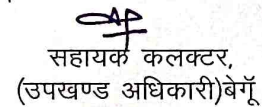 सहायक कलक्टर,
(उपखण्ड अधिकारी)बेगूॅं